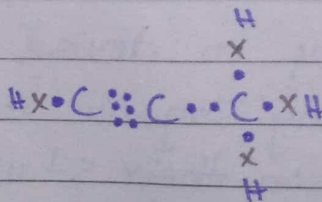 H
x
•
H x • C ⋮⋮ C • • C • x H
•
x
H